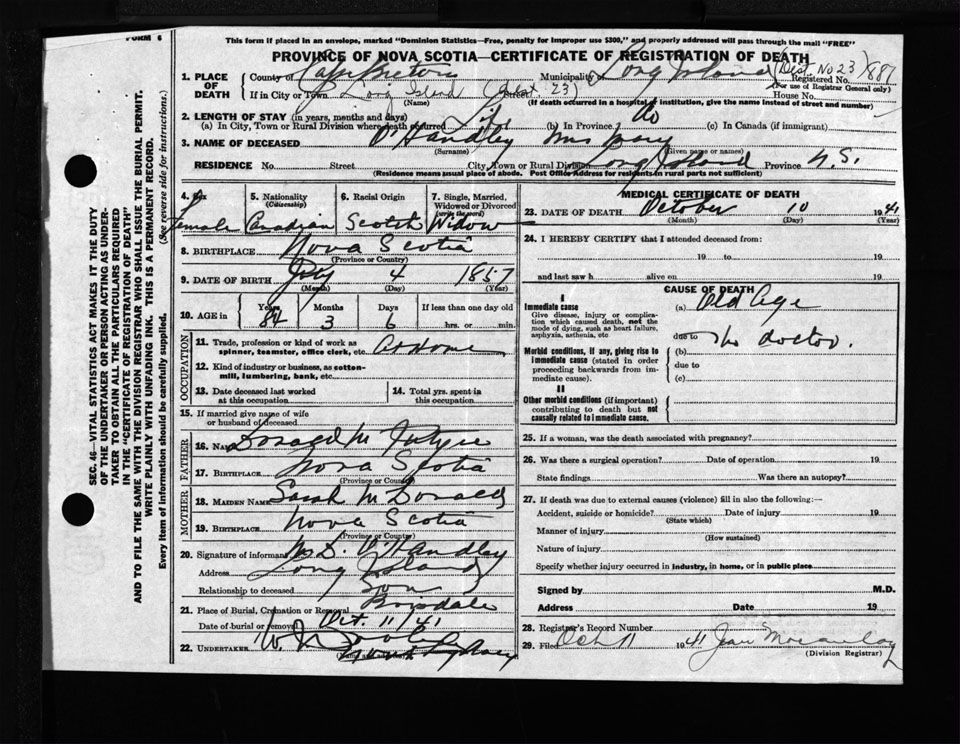 FORM 6
This form if placed in an envelope, marked "Dominion Statistics—Free, penalty for improper use $300," and properly addressed will pass through the mail "FREE"
PROVINCE OF NOVA SCOTIA—CERTIFICATE OF REGISTRATION OF DEATH
1. PLACE OF DEATH County of Cape Breton Municipality Long Island (Dist. No 23) 887 Registered No.
(For use of Registrar General only)
If in City or Town Long Island (Dist. 23) Street House No.
(Name) (If death occurred in a hospital or institution, give the name instead of street and number)
2. LENGTH OF STAY (in years, months and days)
(a) In City, Town or Rural Division where death occurred Life (b) In Province do (c) In Canada (if immigrant)
3. NAME OF DECEASED O'Handley Mrs Mary
(Surname) (Given name or names)
RESIDENCE No. Street City, Town or Rural Division Long Island Province N.S.
(Residence means usual place of abode. Post Office Address for residents in rural parts not sufficient)
4. Sex 5. Nationality (Citizenship) 6. Racial Origin 7. Single, Married, Widowed or Divorced (write the word)
Female Canadian Scotch Widow
8. BIRTHPLACE Nova Scotia
(Province or Country)
9. DATE OF BIRTH July 4 1857
(Month) (Day) (Year)
10. AGE in Years Months Days If less than one day old
84 3 6 hrs. or min.
OCCUPATION
11. Trade, profession or kind of work as spinner, teamster, office clerk, etc. At Home
12. Kind of industry or business, as cotton-mill, lumbering, bank, etc.
13. Date deceased last worked at this occupation 14. Total yrs. spent in this occupation
15. If married give name of wife or husband of deceased
FATHER
16. Name Donald
17. BIRTHPLACE Nova Scotia
(Province or Country)
MOTHER
18. MAIDEN NAME Sarah McDonald
19. BIRTHPLACE Nova Scotia
(Province or Country)
20. Signature of informant O'Handley
Address Long Island
Relationship to deceased Son
21. Place of Burial, Cremation or Removal
Date of burial or removal Oct. 11/41
22. UNDERTAKER
MEDICAL CERTIFICATE OF DEATH
23. DATE OF DEATH October 10 1941
(Month) (Day) (Year)
24. I HEREBY CERTIFY that I attended deceased from:
19 to 19
and last saw h alive on 19
CAUSE OF DEATH
I
Immediate cause
Give disease, injury or complication which caused death, not the mode of dying, such as heart failure, asphyxia, asthenia, etc
(a) Old Age
due to No doctor.
Morbid conditions, if any, giving rise to immediate cause (stated in order proceeding backwards from immediate cause).
(b)
due to
(c)
II
Other morbid conditions (if important) contributing to death but not causally related to immediate cause.
25. If a woman, was the death associated with pregnancy?
26. Was there a surgical operation? Date of operation 19
State findings Was there an autopsy?
27. If death was due to external causes (violence) fill in also the following:—
Accident, suicide or homicide? Date of injury 19
(State which)
Manner of injury
(How sustained)
Nature of injury
Specify whether injury occurred in industry, in home, or in public place
Signed by M.D.
Address Date 19
28. Registrar's Record Number
29. Filed Oct 11 1941 Jean
(Division Registrar)
SEC. 46—VITAL STATISTICS ACT MAKES IT THE DUTY
OF THE UNDERTAKER OR PERSON ACTING AS UNDER-
TAKER TO OBTAIN ALL THE PARTICULARS REQUIRED
IN THE "CERTIFICATE OF REGISTRATION OF DEATH"
AND TO FILE THE SAME WITH THE DIVISION REGISTRAR WHO SHALL ISSUE THE BURIAL PERMIT.
WRITE PLAINLY WITH UNFADING INK. THIS IS A PERMANENT RECORD.
Every item of information should be carefully supplied. (See reverse side for instructions.)